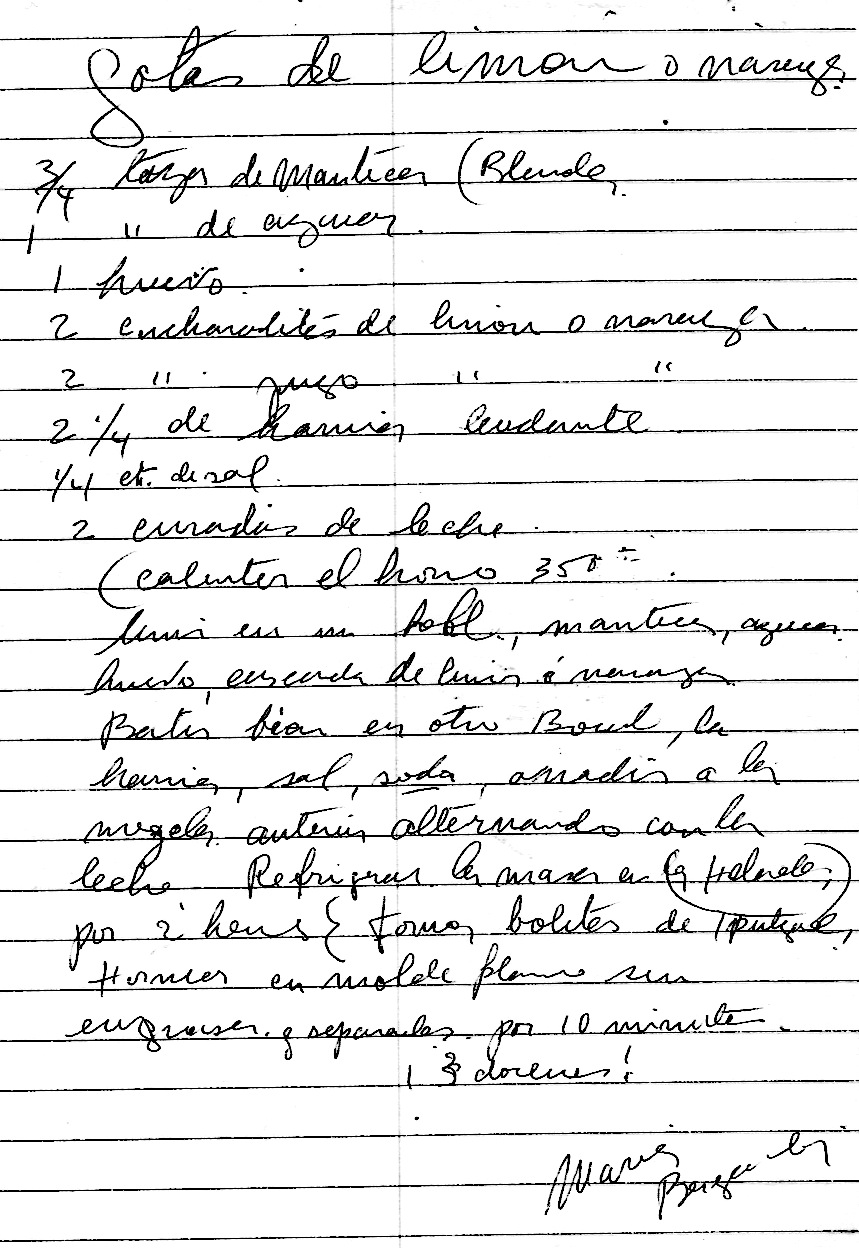 Gotas de limon o naranja
3/4 taza de Manteca (Blanda,
1 " de azucar.
1 huevo.
2 cucharaditas de limon o naranja
2 " jugo " "
2 1/4 de harina leudante
1/4 ct. de sal.
2 de leche.
(calentar el horno 350°
en un , manteca, azucar
huevo, de limon o naranja
Batir bien en otro Bowl, la
harina, sal, soda, añadir a la
mezcla anterior alternando con la
leche Refrigerar la masa en la Helade,
por 2 horas formar bolitas de 1 pulgada,
Hornear en molde plano sin
engrasar y separadas por 10 minutos.
3 docenas!
Maria